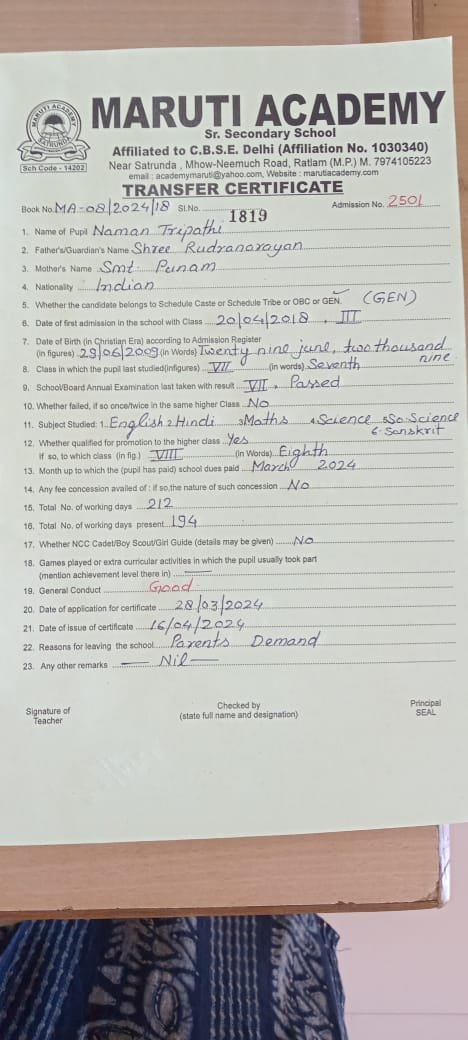 MARUTI ACADEMY
SATRUNDA
Sch Code - 14202
MARUTI ACADEMY
Sr. Secondary School
Affiliated to C.B.S.E. Delhi (Affiliation No. 1030340)
Near Satrunda , Mhow-Neemuch Road, Ratlam (M.P.) M. 7974105223
email : academymaruti@yahoo.com, Website : marutiacademy.com
TRANSFER CERTIFICATE
Book No. MA-08/2024/18 Sl.No. 1819 Admission No. 2501
1. Name of Pupil Naman Tripathi
2. Father's/Guardian's Name Shree Rudranarayan
3. Mother's Name Smt Punam
4. Nationality Indian
5. Whether the candidate belongs to Schedule Caste or Schedule Tribe or OBC or GEN. (GEN)
6. Date of first admission in the school with Class 20/04/2018 , III
7. Date of Birth (in Christian Era) according to Admission Register
(in figures) 29/06/2009 (in Words) Twenty nine june, two thousand nine
8. Class in which the pupil last studied(infigures) VII (in words) Seventh
9. School/Board Annual Examination last taken with result VII, Passed
10. Whether failed, if so once/twice in the same higher Class No
11. Subject Studied: 1. English 2 Hindi 3 Maths 4 Science 5 So.Science
6. Sanskrit
12. Whether qualified for promotion to the higher class Yes
If so, to which class (in fig.) VIII (in Words) Eighth
13. Month up to which the (pupil has paid) school dues paid March 2024
14. Any fee concession availed of : if so,the nature of such concession No
15. Total No. of working days 212
16. Total No. of working days present 194
17. Whether NCC Cadet/Boy Scout/Girl Guide (details may be given) No
18. Games played or extra curricular activities in which the pupil usually took part
(mention achievement level there in) —
19. General Conduct Good
20. Date of application for certificate 28/03/2024
21. Date of issue of certificate 16/04/2024
22. Reasons for leaving the school Parents Demand
23. Any other remarks — Nil —
Signature of
Teacher
Checked by
(state full name and designation)
Principal
SEAL